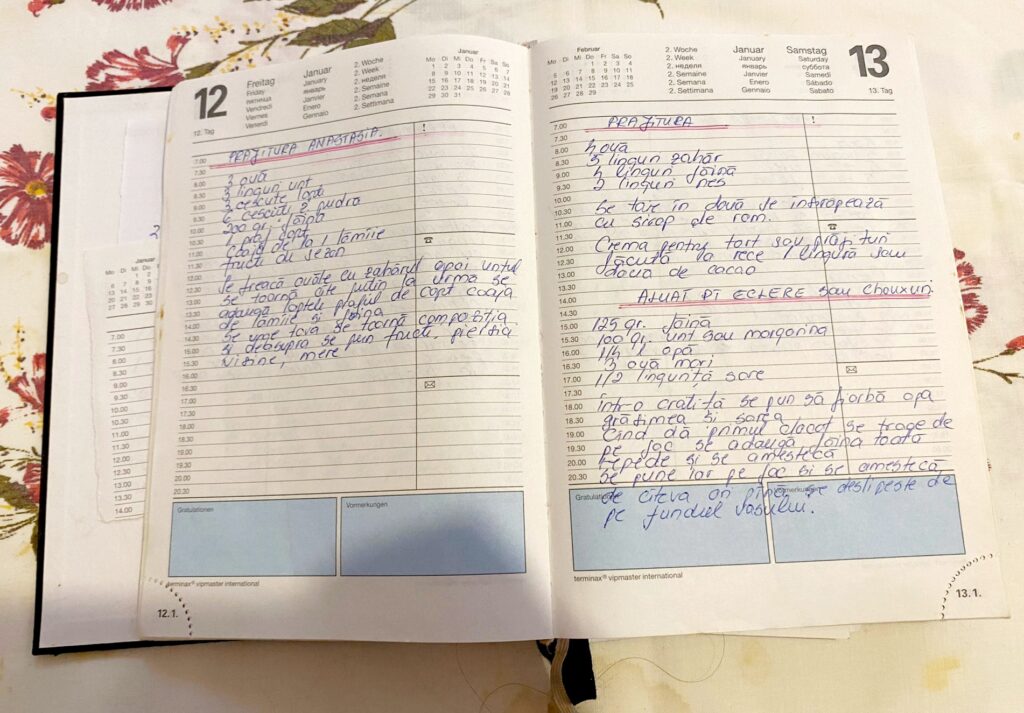 12
Freitag
Friday
пятница
Vendredi
Viernes
Venerdi
Januar
January
январь
Janvier
Enero
Gennaio
2. Woche
2. Week
2. недели
2. Semaine
2. Semana
2. Settimana
Januar
Mo Di Mi Do Fr Sa So
1 2 3 4 5 6 7
8 9 10 11 12 13 14
15 16 17 18 19 20 21
22 23 24 25 26 27 28
29 30 31
12. Tag
!
7.00 PRAJITURA ANASTASIA.
7.30
8.00 3 ouă
8.30 3 linguri unt
9.00 3 cescute lapte
9.30 6 cescuți z pudra
10.00 200 gr. făină
10.30 1 praf copt
11.00 Coajă de la 1 lămiie
11.30 fructi du sezon
12.00
12.30 Se freacă ouăle cu zahărul apoi untul
13.00 se toarnă cîte putin la urma se
13.30 adaugă laptele praful de copt coaja
14.00 de lămiie si făina
14.30 Se unge tava se toarnă compozitia
15.00 si deasupra se pun fructi,
15.30 visine, mere
16.00
16.30
17.00
17.30
18.00
18.30
19.00
19.30
20.00
20.30
Gratulationen
Vormerkungen
terminax® vipmaster international
12.1.
Januar
Mo Di Mi Do
7.00
7.30
8.00
8.30
9.00
9.30
10.00
10.30
11.00
11.30
12.00
12.30
13.00
13.30
14.00
Februar
Mo Di Mi Do Fr Sa So
1 2 3 4
5 6 7 8 9 10 11
12 13 14 15 16 17 18
19 20 21 22 23 24 25
26 27 28 29
2. Woche
2. Week
2. недели
2. Semaine
2. Semana
2. Settimana
Januar
January
январь
Janvier
Enero
Gennaio
Samstag
Saturday
суббота
Samedi
Sábado
Sabato
13
13. Tag
!
7.00 PRAJITURA
7.30
8.00 ouă
8.30 5 linguri zahăr
9.00 4 linguri făină
9.30 2 linguri nes
10.00
10.30 Se taie în două se insiropează
11.00 cu sirop de rom.
11.30
12.00 Crema pentru tort sau prăjituri
12.30 făcută la rece 1 lingură sau
13.00 două de cacao
13.30
14.00 ALUAT PT ECLERE sau chouxuri
14.30
15.00 125 gr. făină
15.30 100 gr. unt sau margarina
16.00 1/4 l apă
16.30 3 ouă mari
17.00 1/2 linguriță sare
17.30
18.00 Într-o cratiță se pun să fiarbă apa
18.30 grăsimea si sarea
19.00 Cînd dă primul clocot se trage de
19.30 pe foc se adaugă făina toată
20.00 repede si se amestecă
20.30 Se pune iar pe foc si se amestecă
de cîteva ori pînă se deslipeste de
pe fundul vasului.
Gratulationen
Vormerkungen
terminax® vipmaster international
13.1.